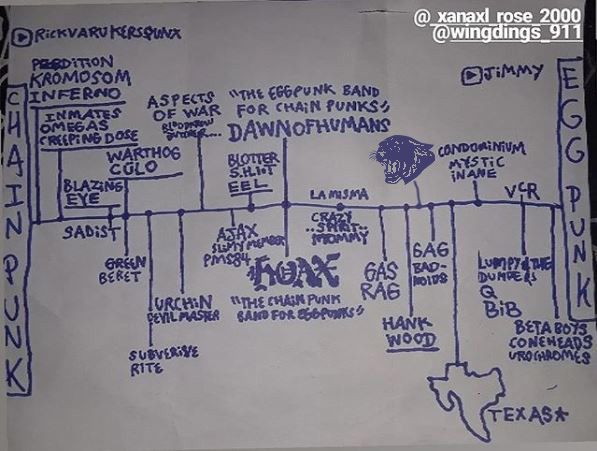 @_xanaxl_rose_2000
@wingdings_911
RICKVARUKERSPUNX
JiMMY
CHAIN PUNK
EGG PUNK
PERDITION
KROMOSOM
INFERNO
INMATES
OMEGAS
CREEPING DOSE
WARTHOG
CÜLO
BLAZING
EYE
SADIST
GREEN
BERET
ASPECTS
OF WAR
SUBVERSIVE
RITE
URCHIN
DEVIL MASTER
"THE EGGPUNK BAND
FOR CHAIN PUNKS"
DAWN OF HUMANS
BLOTTER
S.H.I.T
EEL
AJAX
PMS84
HOAX
"THE CHAIN PUNK
BAND FOR EGGPUNKS"
LA MISMA
CRAZY
SPIRIT
MOMMY
GAS
RAG
GAG
BAD-
NOIDS
HANK
WOOD
CONDOMINIUM
MYSTIC
INANE
VCR
LUMPY & THE
DUMPERS
Q
BIB
BETA BOYS
CONEHEADS
UROCHROMES
TEXAS*